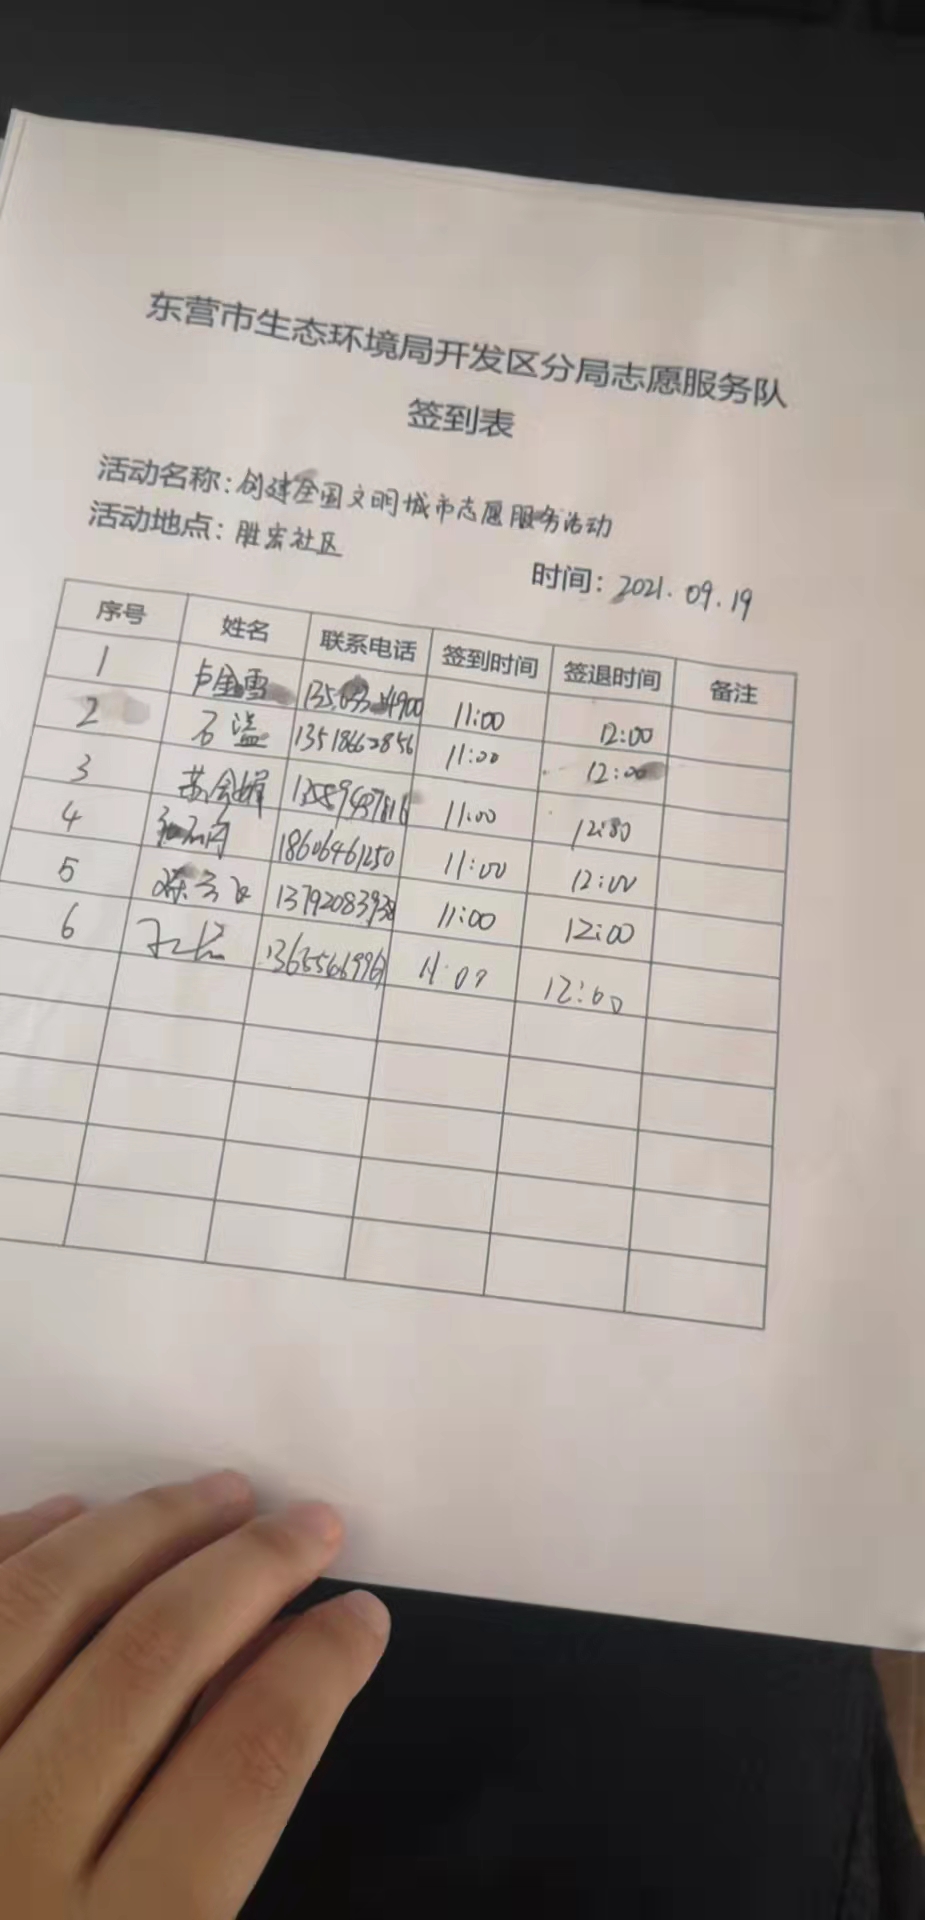 东营市生态环境局开发区分局志愿服务队
签到表
活动名称：创建全国文明城市志愿服务活动
活动地点：胜宏社区
时间：2021.09.19
序号 姓名 联系电话 签到时间 签退时间 备注
1 卢金雪 11:00 12:00
2 石溢 13518662856 11:00 12:00
3 11:00 12:00
4 18606461250 11:00 12:00
5 陈云飞 13792083938 11:00 12:00
6 11:00 12:00